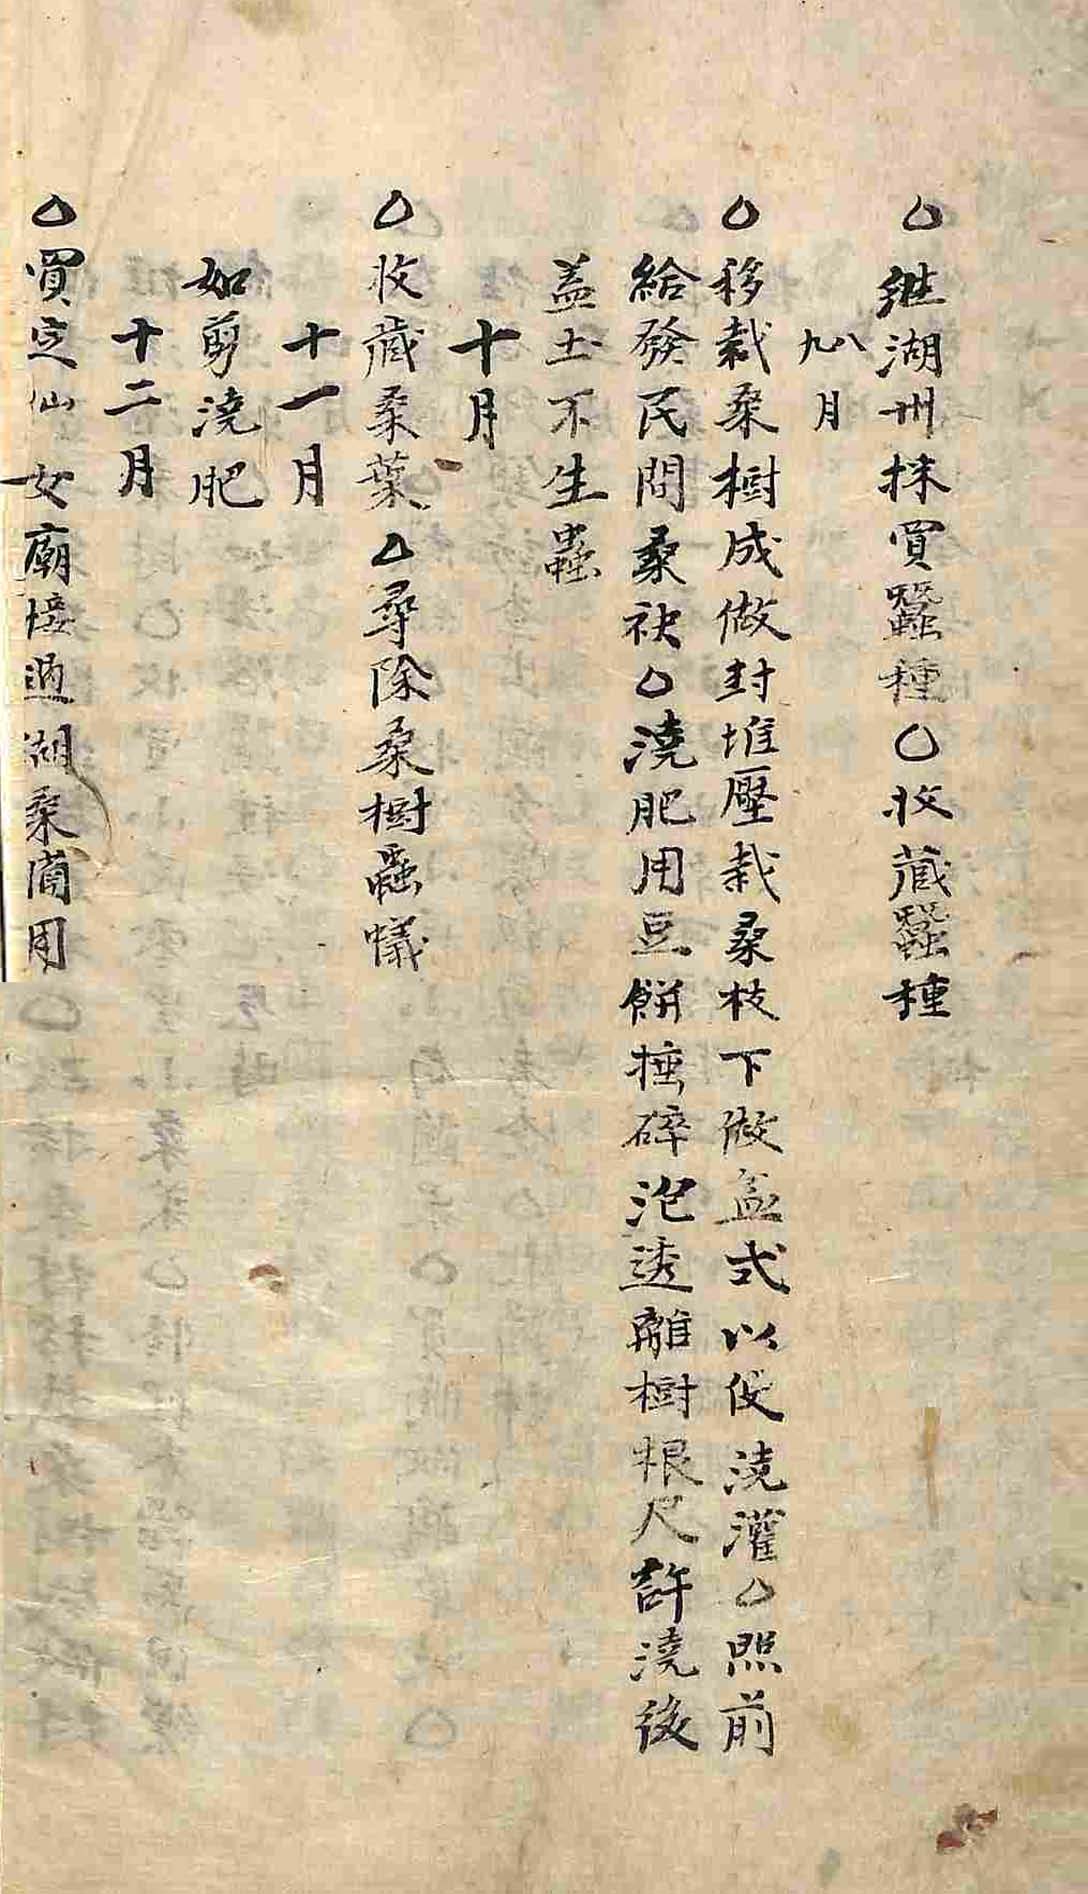 ○继湖州採買蠶種○收藏蠶種
九月
○移栽桑樹成做封堆壓栽桑枝下做盆式以便澆灌○照前
給發民間桑秧○澆肥用豆餅搥碎泡透離樹根尺許澆後
盖土不生蟲
十月
○收藏桑葉○尋除桑樹蟲蟻
十一月
如剪澆肥
十二月
○買定仙女廟接過湖桑俻用